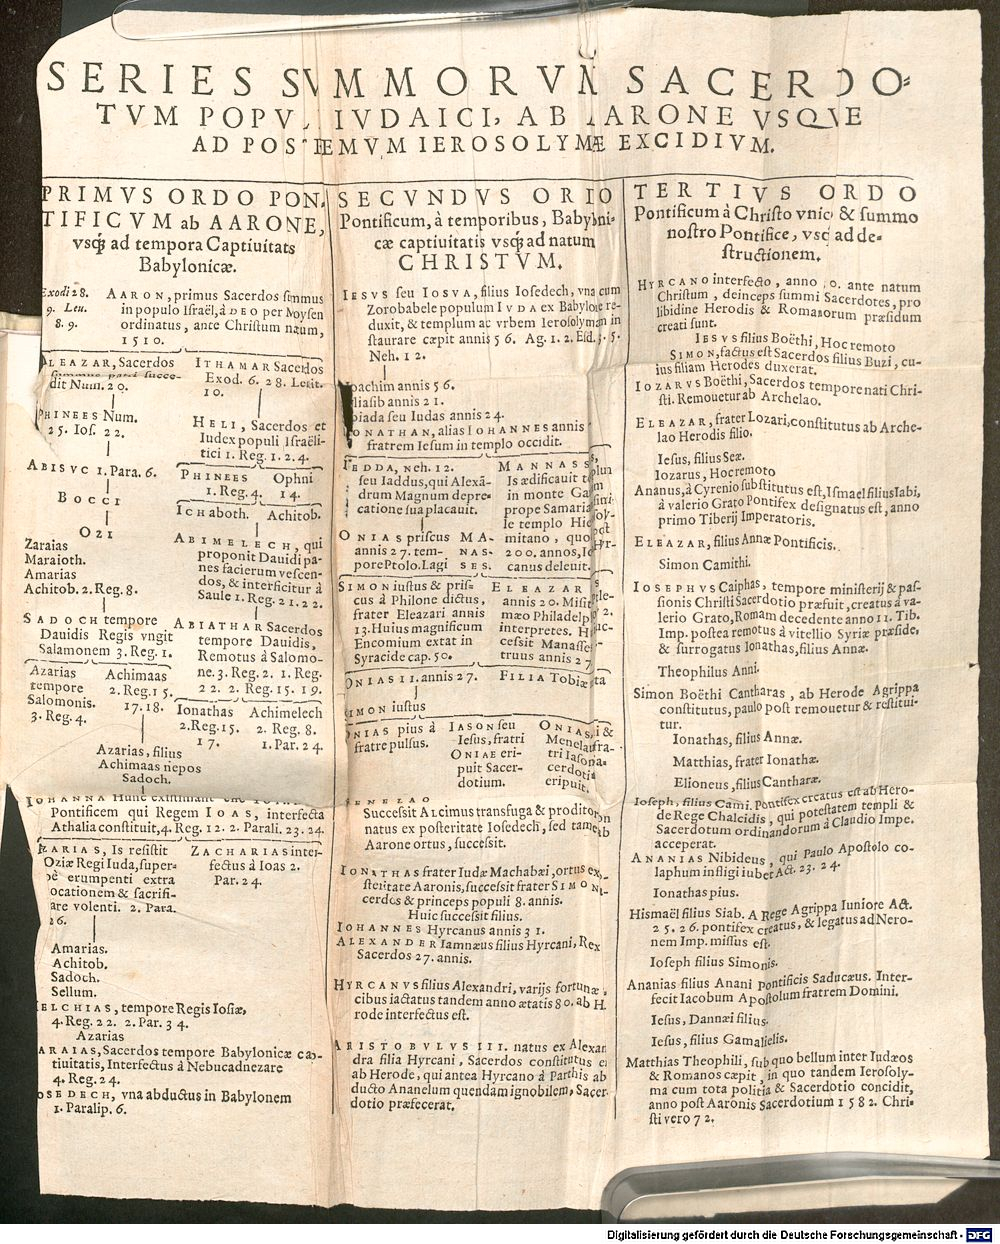 SERIES SVMMORVM SACERDO-
TVM POPV IVDAICI, AB AARONE VSQVE
AD POSTREMVM IEROSOLYMÆ EXCIDIVM.
PRIMVS ORDO PON-
TIFICVM ab AARONE,
vsq; ad tempora Captiuitats
Babylonicæ.
Exodi 28.
9. Leu.
8. 9.
AARON, primus Sacerdos summus
in populo Israël, à DEO per Moysen
ordinatus, ante Christum natum,
1510.
ELEAZAR, Sacerdos
dit Num. 20.
ITHAMAR Sacerdos
Exod. 6. 28. Leuit.
10.
PHINEES Num.
25. Ios. 22.
HELI, Sacerdos et
Iudex populi Israëli-
tici 1. Reg. 1. 2. 4.
ABISVC 1. Para. 6.
PHINEES Ophni
1. Reg. 4. 14.
BOCCI
ICHaboth. Achitob.
OZI
Zaraias
Maraioth.
Amarias
Achitob. 2. Reg. 8.
ABIMELECH, qui
proponit Dauidi pa-
nes facierum vescen-
dos, & interficitur à
Saule 1. Reg. 21. 22.
SADOCH tempore
Dauidis Regis vngit
Salamonem 3. Reg. 1.
ABIATHAR Sacerdos
tempore Dauidis,
Remotus à Salomo-
ne. 3. Reg. 2. 1. Reg.
22. 2. Reg. 15. 19.
Azarias
tempore
Salomonis.
3. Reg. 4.
Achimaas
2. Reg. 15.
17. 18.
Ionathas
2. Reg. 15.
17.
Achimelech
2. Reg. 8.
1. Par. 24.
Azarias, filius
Achimaas nepos
Sadoch.
IOHANNA Hunc existimant
Pontificem qui Regem IOAS, interfecta
Athalia constituit, 4. Reg. 12. 2. Parali. 23. 24.
AZARIAS, Is resistit
Oziæ Regi Iuda, super-
bè erumpenti extra
vocationem & sacrifi-
care volenti. 2. Para.
26.
ZACHARIAS inter-
fectus à Ioas 2.
Par. 24.
Amarias.
Achitob.
Sadoch.
Sellum.
HELCHIAS, tempore Regis Iosiæ,
4. Reg. 22. 2. Par. 34.
Azarias
SARAIAS, Sacerdos tempore Babylonicæ cap-
tiuitatis, Interfectus à Nebucadnezare
4. Reg. 24.
IOSEDECH, vna abductus in Babylonem
1. Paralip. 6.
SECVNDVS ORDO
Pontificum, à temporibus, Babyloni-
cæ captiuitatis vsq; ad natum
CHRISTVM.
IESVS seu IOSVA, filius Iosedech, vna cum
Zorobabele populum IVDA ex Babylone re-
duxit, & templum ac vrbem Ierosolymam in
staurare cœpit annis 56. Ag. 1. 2. Esd. 3. 5.
Neh. 12.
Ioachim annis 56.
Eliasib annis 21.
Ioiada seu Iudas annis 24.
IONATHAN, alias IOHANNES annis
fratrem Iesum in templo occidit.
IEDDA, Neh. 12.
seu Iaddus, qui Alexã-
drum Magnum depre-
catione sua placauit.
MANNASS
Is ædificauit t
in monte Ga
prope Samaria
le templo Hie
mitano, quo
200. annos, Io
canus deleuit.
ONIAS priscus
annis 27. tem-
pore Ptolo. Lagi
MA-
NAS-
SES.
SIMON iustus & pris-
cus à Philone dictus,
frater Eleazari annis
13. Huius magnificum
Encomium extat in
Syracide cap. 50.
ELEAZAR
annis 20. Misit
mæo Philadelp
interpretes. H
cessit Manasse
truus annis 27
ONIAS II. annis 27. FILIA Tobiæ
SIMON iustus
ONIAS pius à
fratre pulsus.
IASON seu
Iesus, fratri
ONIAE eri-
puit Sacer-
dotium.
ONIAS, i &
Menelaus fra-
tri Iasona
cerdotiũ
eripuit.
MENELAO
Successit ALcimus transfuga & proditor, on
natus ex posteritate Iosedech, sed tamē ab
Aarone ortus, successit.
IONATHAS frater Iudæ Machabæi, ortus ex
steritate Aaronis, successit frater SIMON,
cerdos & princeps populi 8. annis.
Huic successit filius.
IOHANNES Hyrcanus annis 31.
ALEXANDER Iamnæus filius Hyrcani, Rex
Sacerdos 27. annis.
HYRCANVS filius Alexandri, varijs fortunæ,
cibus iactatus tandem anno ætatis 80. ab H
rode interfectus est.
ARISTOBVLVS III. natus ex Alexan
dra filia Hyrcani, Sacerdos constitutus e
ab Herode, qui antea Hyrcano à Parthis ab
ducto Ananelum quendam ignobilem, Sacer
dotio præfecerat.
TERTIVS ORDO
Pontificum à Christo vnico & summo
nostro Pontifice, vsq; ad de-
structionem.
HYRCANO interfecto, anno 30. ante natum
Christum, deinceps summi Sacerdotes, pro
libidine Herodis & Romanorum præsidum
creati sunt.
IESVS filius Boëthi, Hoc remoto
SIMON, factus est Sacerdos filius Buzi, cu-
ius filiam Herodes duxerat.
IOZARVS Boëthi, Sacerdos tempore nati Chri-
sti. Remouetur ab Archelao.
ELEAZAR, frater Lozari, constitutus ab Arche-
lao Herodis filio.
Iesus, filius Seæ.
Iozarus, Hoc remoto
Ananus, à Cyrenio substitutus est, Ismael filius Iabi,
à valerio Grato Pontifex designatus est, anno
primo Tiberij Imperatoris.
ELEAZAR, filius Annæ Pontificis.
Simon Camithi.
IOSEPHVS Caiphas, tempore ministerij & pas-
sionis Christi Sacerdotio præfuit, creatus à va-
lerio Grato, Romam decedente anno 11. Tib.
Imp. postea remotus à vitellio Syriæ præside,
& surrogatus Ionathas, filius Annæ.
Theophilus Anni.
Simon Boëthi Cantharas, ab Herode Agrippa
constitutus, paulo post remouetur & restitui-
tur.
Ionathas, filius Annæ.
Matthias, frater Ionathæ.
Elioneus, filius Cantharæ.
Ioseph, filius Cami. Pontifex creatus est ab Hero-
de Rege Chalcidis, qui potestatem templi &
Sacerdotum ordinandorum à Claudio Impe.
acceperat.
ANANIAS Nibideus, qui Paulo Apostolo co-
laphum infligi iubet Act. 23. 24.
Ionathas pius.
Hismaël filius Siab. A Rege Agrippa Iuniore Act.
25. 26. pontifex creatus, & legatus ad Nero-
nem Imp. missus est.
Ioseph filius Simonis.
Ananias filius Anani Pontificis Saducæus. Inter-
fecit Iacobum Apostolum fratrem Domini.
Iesus, Dannæi filius.
Iesus, filius Gamalielis.
Matthias Theophili, sub quo bellum inter Iudæos
& Romanos cæpit, in quo tandem Ierosoly-
ma cum tota politia & Sacerdotio concidit,
anno post Aaronis Sacerdotium 1582. Chri-
sti vero 72.
Digitalisierung gefördert durch die Deutsche Forschungsgemeinschaft - DFG